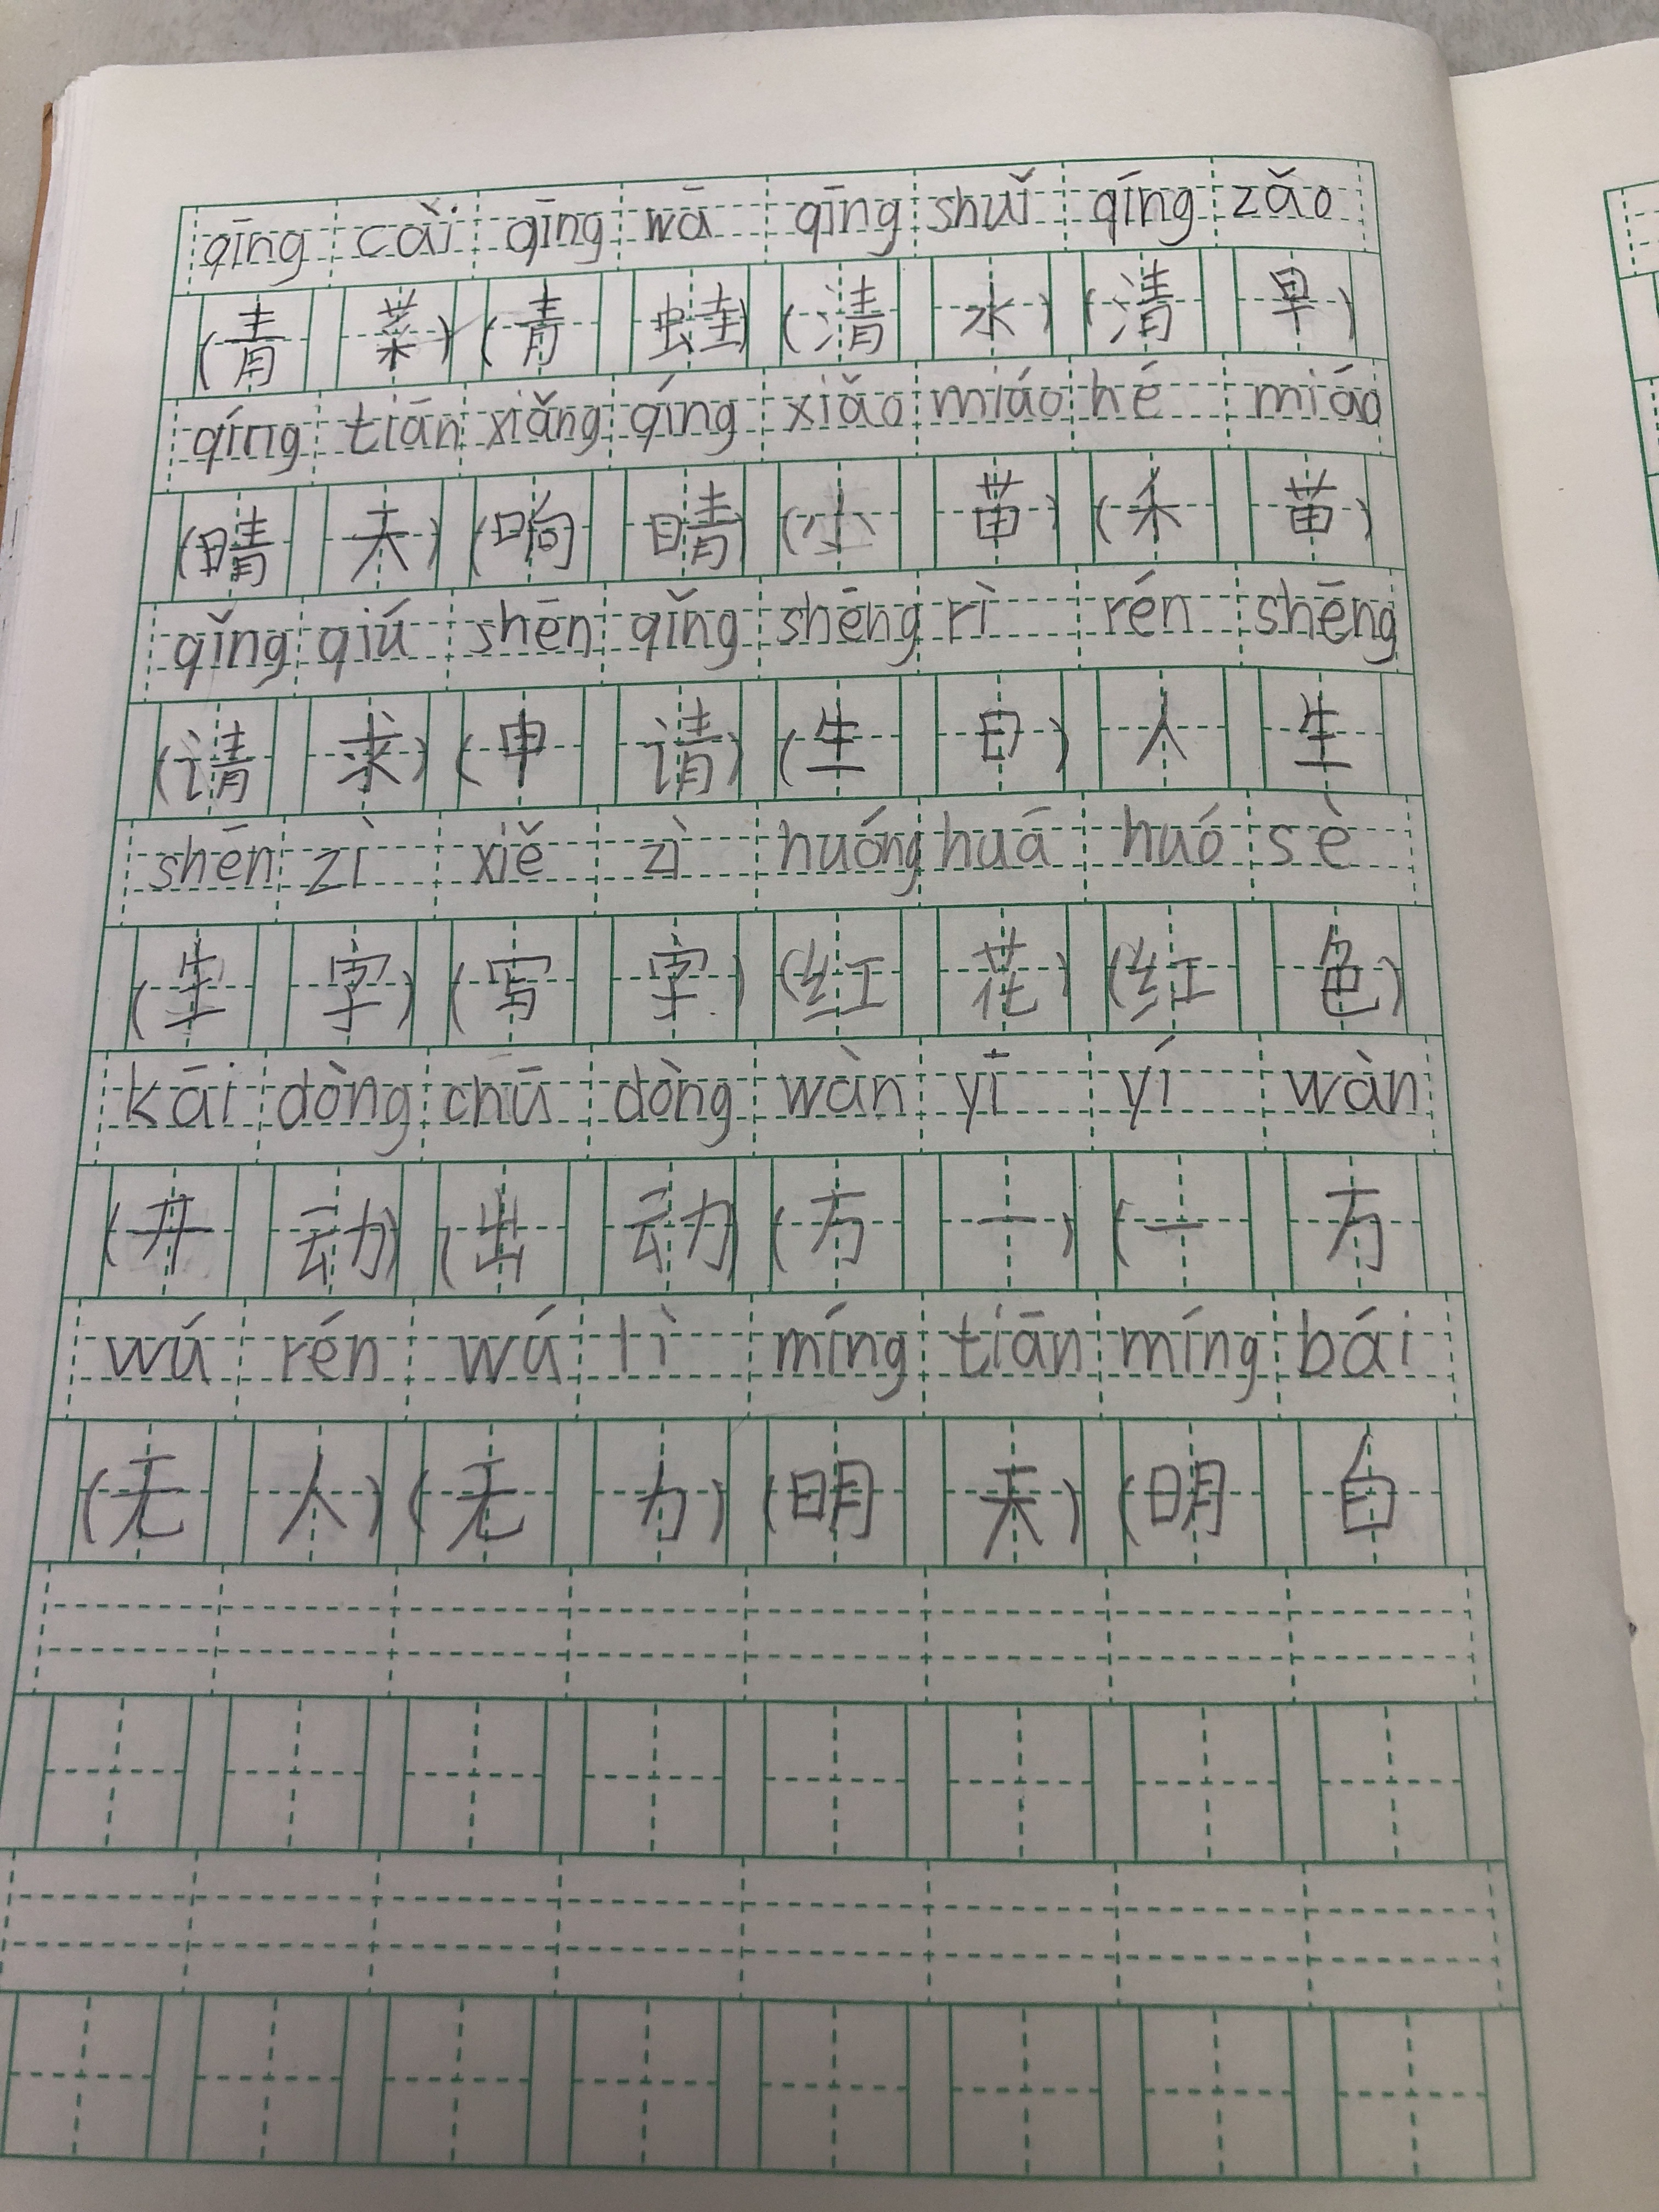 qīng cài qīng wā qīng shuǐ qíng zǎo
(青 菜) (青 蛙) (清 水) (清 早)
qíng tiān xiǎng qíng xiǎo miáo hé miáo
(晴 天) (晌 晴) (小 苗) (禾 苗)
qǐng qiú shēn qǐng shēng rì rén shēng
(请 求) (申 请) (生 日) 人 生
shēn zì xiě zì huóng huā huó sè
(生 字) (写 字) (红 花) (红 色)
kāi dòng chū dòng wàn yī yí wàn
(开 动) (出 动) (方 一) (一 方
wú rén wú lì míng tiān míng bái
(无 人) (无 力) (明 天) (明 白